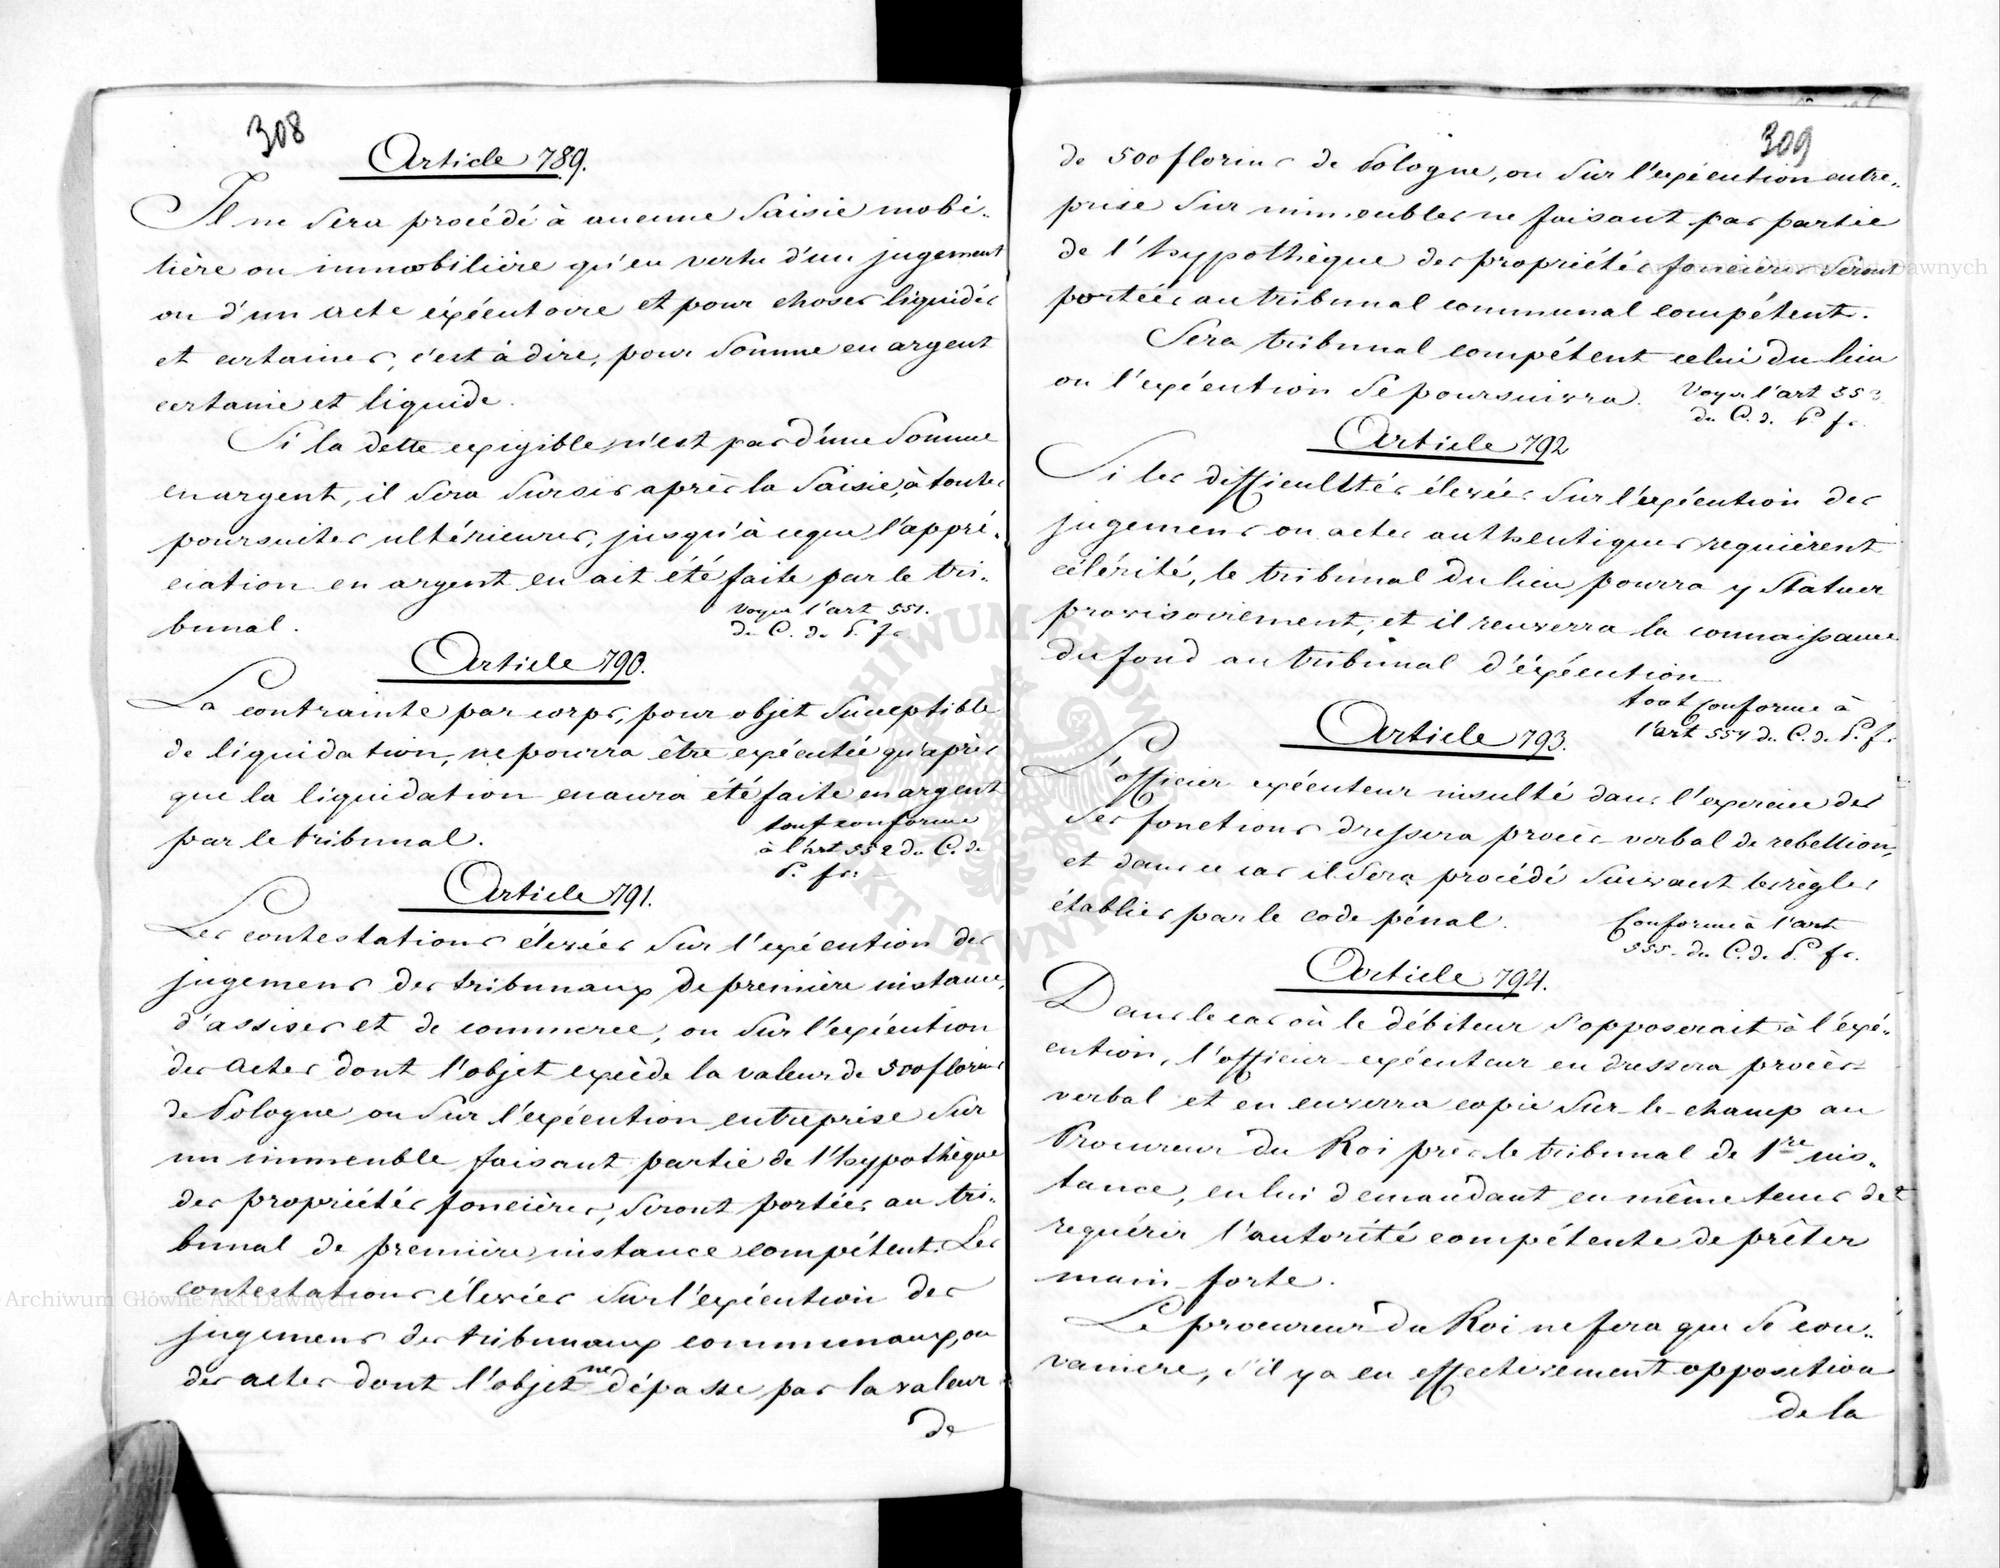 308
Article 789.
Il ne sera procédé à aucune saisie mobi-
lière ou immobilière qu'en vertu d'un jugement
ou d'un acte éxécutoire et pour choses liquides
et certaines, c'est à dire, pour somme en argent
certaine et liquide.
Si la dette exigible n'est pas d'une somme
en argent, il sera sursis après la saisie, à toutes
poursuites ultérieures, jusqu'à ce que l'appré-
ciation en argent en ait été faite par le tri-
bunal.
Voyez l'art 551.
du C. de P. fr.
Article 790.
La contrainte par corps, pour objet susceptible
de liquidation, ne pourra être exécutée qu'après
que la liquidation en aura été faite en argent
par le tribunal.
tout conforme
à l'art 552 du C. de
P. fr:
Article 791.
Les contestations élevées sur l'exécution des
jugemens des tribunaux de première instance,
d'assises et de commerce, ou sur l'exécution
des actes dont l'objet excède la valeur de 500 florins
de Pologne ou sur l'exécution entreprise sur
un immeuble faisant partie de l'hypothèque
des propriétés foncières, seront portées au tri-
bunal de première instance compétent. Les
contestations élevées sur l'exécution des
jugemens des tribunaux communaux, ou
des actes dont l'objet ne dépasse pas la valeur
de
309
de 500 florins de Pologne, ou sur l'exécution entre-
prise sur immeubles ne faisant pas partie
de l'hypothèque des propriétés foncières seront
portées au tribunal communal compétent.
Sera tribunal compétent celui du lieu
ou l'exécution se poursuivra.
Voyez l'art 553
du C. d. P. fr.
Article 792
Si les difficulttés élevées sur l'exécution des
jugemens ou actes authentiques requièrent
célérité, le tribunal du lieu pourra y statuer
provisoirement, et il renverra la connaissance
du fond au tribunal d'éxécution
tout conforme à
l'art 554 du C. de P. fr.
Article 793.
L'officier exécuteur insulté dans l'exercice des
ses fonctions dressera procès-verbal de rebellion,
et dans ce cas il sera procédé suivant les règles
établies par le code pénal.
Conforme à l'art
555. du C. de P. fr.
Article 794.
Dans le cas où le débiteur s'opposerait à l'éxé-
cution, l'officier exécuteur en dressera procès-
verbal et en enverra copie sur-le-champ au
Procureur du Roi près le tribunal de 1re ins-
tance, en lui demandant en même tems de
requérir l'autorité compétente de prêter
main-forte.
Le procureur du Roi ne fera que se con-
vaincre, s'il y a eu effectivement opposition
de la
Archiwum Główne Akt Dawnych
Archiwum Główne Akt Dawnych
ARCHIWUM GŁÓWNE AKT DAWNYCH